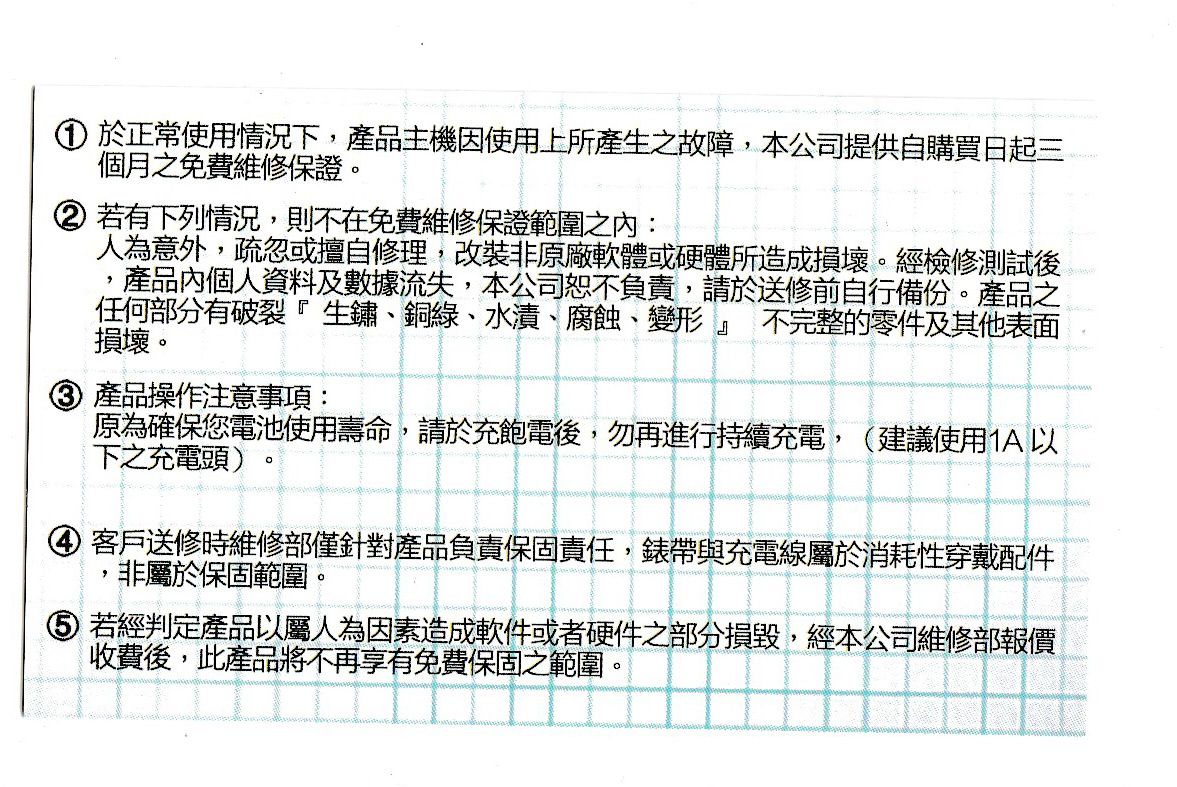 ① 於正常使用情況下，產品主機因使用上所產生之故障，本公司提供自購買日起三
個月之免費維修保證。
② 若有下列情況，則不在免費維修保證範圍之內：
人為意外，疏忽或擅自修理，改裝非原廠軟體或硬體所造成損壞。經檢修測試後
，產品內個人資料及數據流失，本公司恕不負責，請於送修前自行備份。產品之
任何部分有破裂『 生鏽、銅綠、水漬、腐蝕、變形 』 不完整的零件及其他表面
損壞。
③ 產品操作注意事項：
原為確保您電池使用壽命，請於充飽電後，勿再進行持續充電，（建議使用1A 以
下之充電頭）。
④ 客戶送修時維修部僅針對產品負責保固責任，錶帶與充電線屬於消耗性穿戴配件
，非屬於保固範圍。
⑤ 若經判定產品以屬人為因素造成軟件或者硬件之部分損毀，經本公司維修部報價
收費後，此產品將不再享有免費保固之範圍。